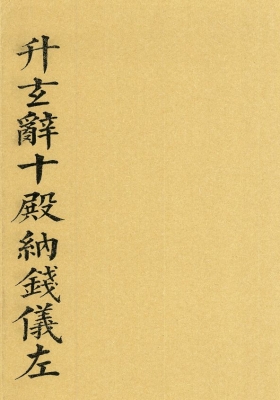 升玄辭十殿納錢儀左